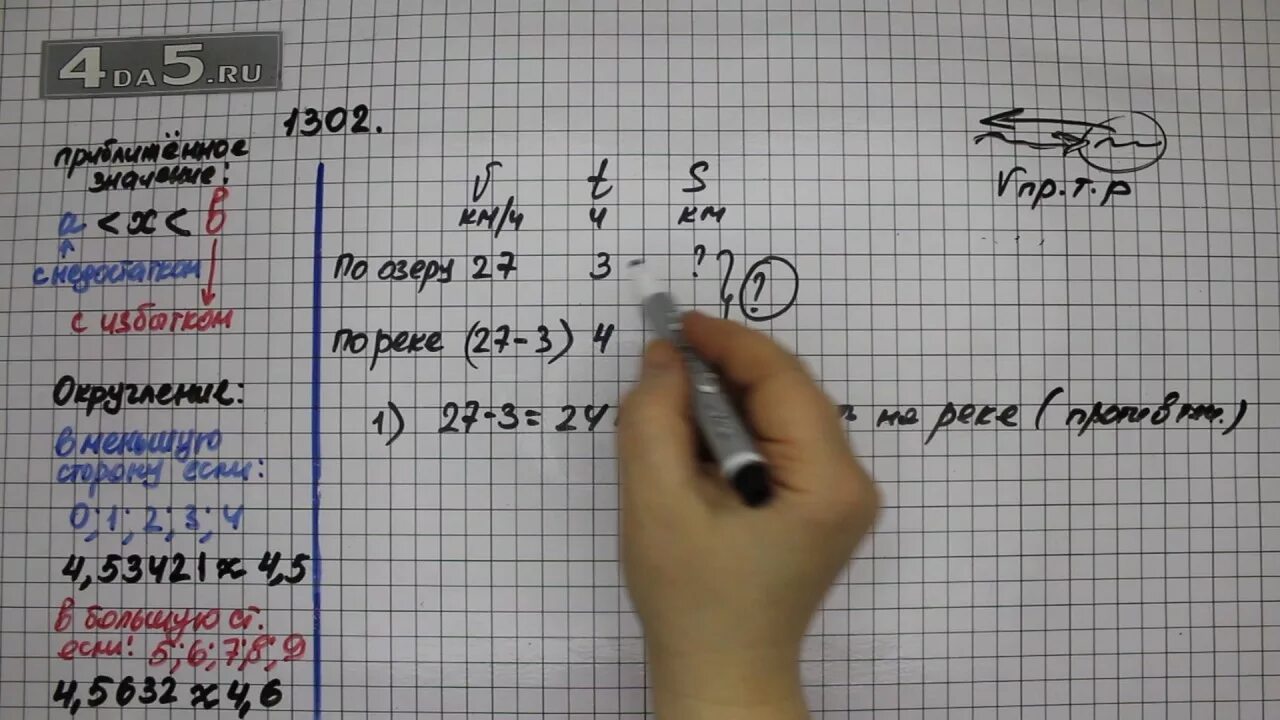 4DA5.RU
1302.
приближённое
значение:
a < x < b
с недостатком
с избытком
Округление:
в меньшую
сторону если:
0; 1; 2; 3; 4
4,53421 ≈ 4,5
в большую ст.
если: 5; 6; 7; 8; 9
4,5632 ≈ 4,6
V t S
км/ч ч км
по озеру 27 3 ?
?
по реке (27-3) 4
1) 27-3= 24 на реке (против
Vпр.т.р